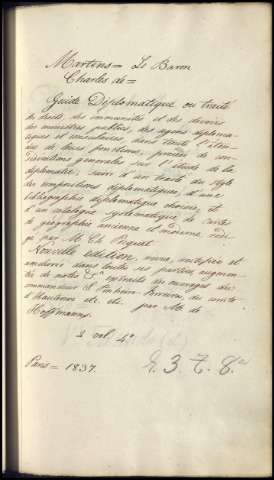 Martens = Le Baron
Charles de =
Guide Diplomatique ou traité
de droits, des immunités et des devoirs
des ministres publics, des agens diploma-
tiques et consulaires, dans toute l'éten-
due de leurs fonctions; précédé de con-
sidérations générales sur l'étude de la
diplomatie; suivi d'un traité du style
des compositions diplomatiques, d'une
bibliographie diplomatique choisie, et
d'un catalogue systématique de cartes
de géographie ancienne et moderne rédi-
gé par M. Ch. Picquet.
Nouvelle édition, revue, corrigée et
améliorée dans toutes ses parties, augmen-
tée de notes &a extraits des ouvrages du
commandeur S. Pinheiro-Ferreira, du comte
d'Hauterive etc. etc. par Mr. de
Hoffmanns.
2 vol. 4°
Paris = 1837. 3. 7. 8.